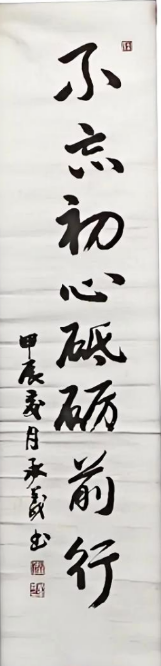 不忘初心砥砺前行
甲辰夏月承义书